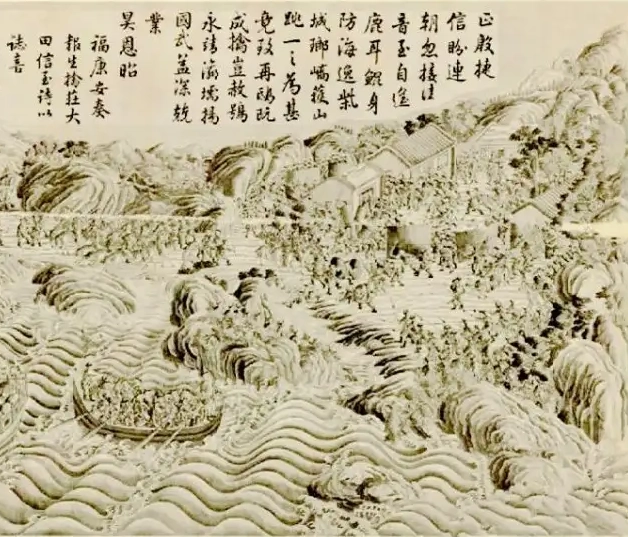 正殷捷
信盼連
朝忽接佳
音至自遙
鹿耳鯤身
防海逸柴
城瑯嶠獲山
跳一之為甚
竟致再鴟既
成擒豈赦鴞
永靖瀛壖揚
國武益深兢
業
昊恩昭
福康安奏
報生擒莊大
田信至詩以
誌喜